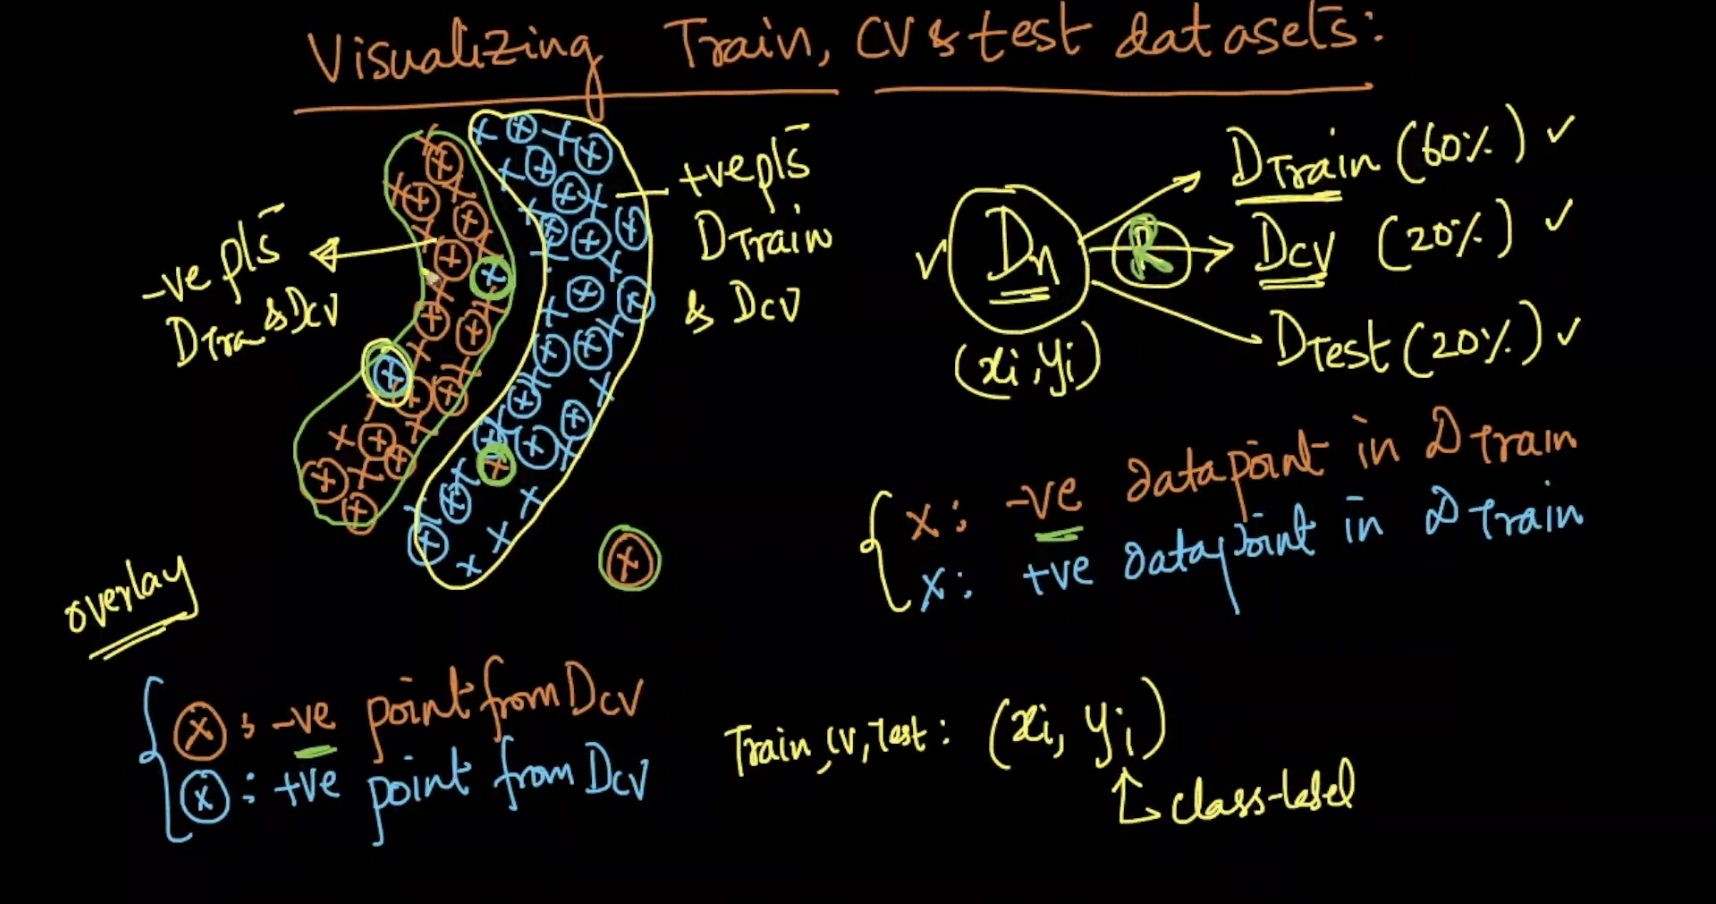 Visualizing Train, CV & test datasets:
-ve pts
DTra & DCV
+ve pts
DTrain
& DCV
Dn
(xi, yi)
R
DTrain (60%) ✓
DCV (20%) ✓
DTest (20%) ✓
x: -ve datapoint in DTrain
x: +ve datapoint in DTrain
overlay
x: -ve point from DCV
x: +ve point from DCV
Train, CV, Test: (xi, yi)
class-label